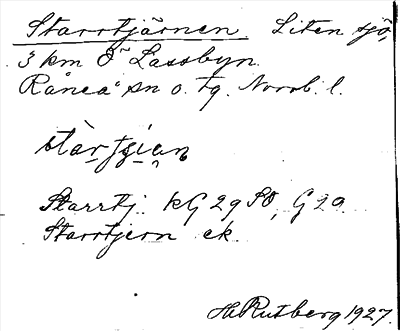 Starrtjärnen. Liten sjö,
3 km Ö Lassbyn.
Råneå sn o. tg. Norrb. l.
Starrtj. kG 29 SO, G 20
Starrtjern ek
H Rutberg 1927.